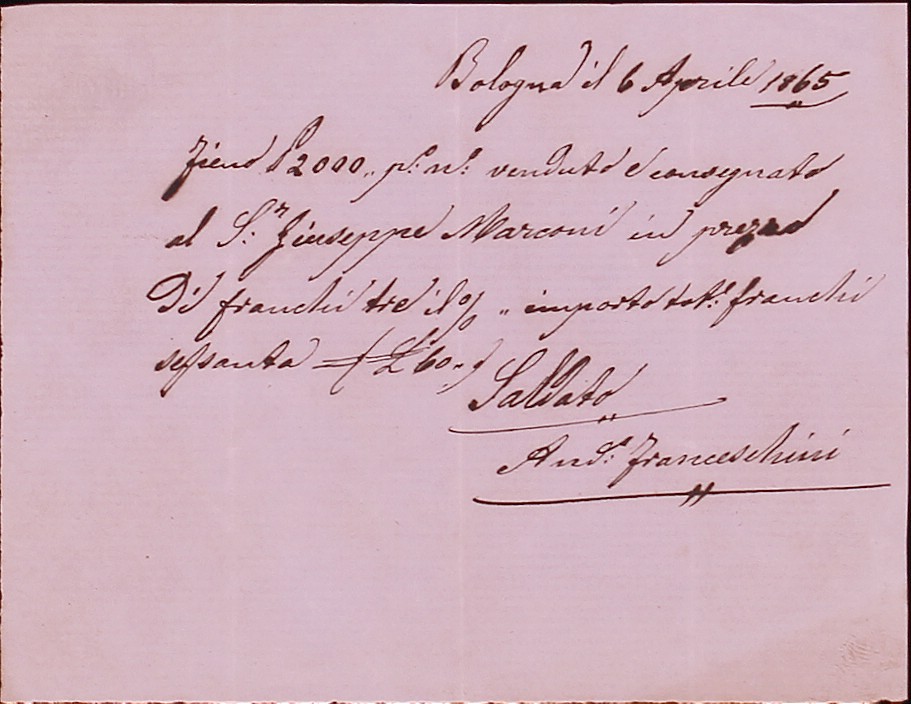 Bologna il 6 Aprile 1865
Fieno £ 2000,, p.º n.º venduto e consegnato
al S.r Giuseppe Marconi in prezzo
Di franchi tre il % ,, importo tot.e franchi
sessanta = (£ 60,,)
Saldato
And.a Franceschini